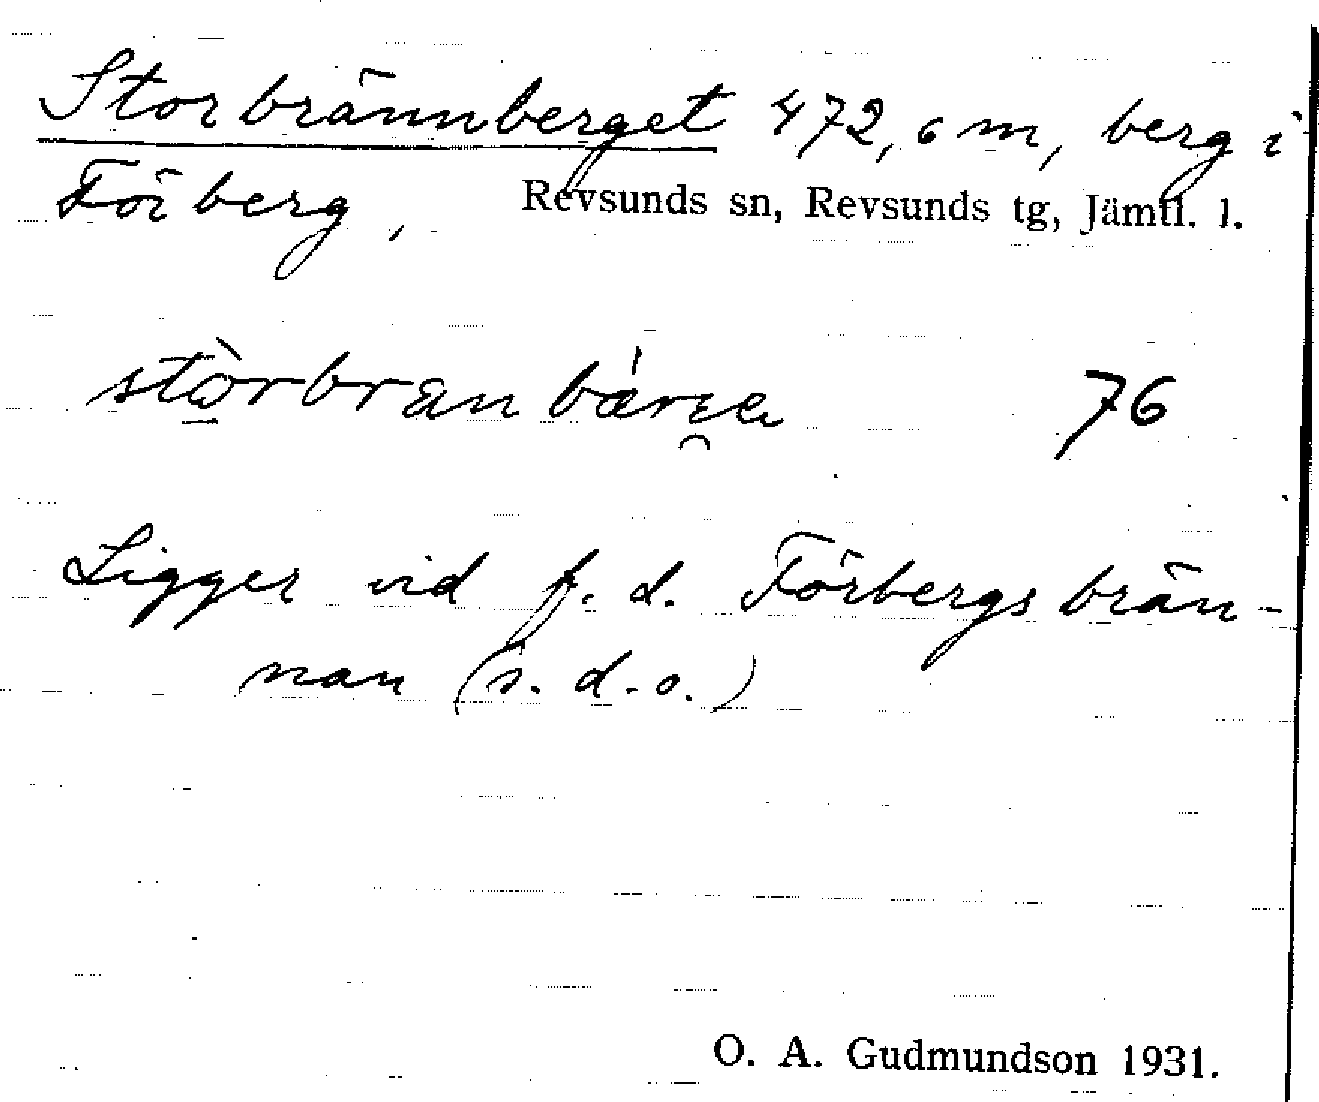 Storbrännberget 472,6 m, berg i
Förberg, Revsunds sn, Revsunds tg, Jämtl. l.
stòrbranbárje 76
Ligger vid f. d. Förbergsbrän-
nan (s. d. o.)
O. A. Gudmundson 1931.